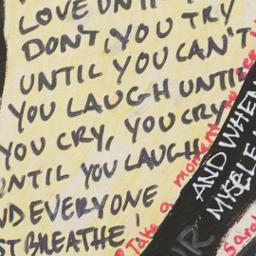 LOVE UNTIL
DON'T, YOU TRY
UNTIL YOU CAN'T
YOU LAUGH UNTIL
YOU CRY, YOU CRY
UNTIL YOU LAUGH
AND EVERYONE
ST BREATHE!
Take a moment
AND WHEN
MYSELF
Sarah